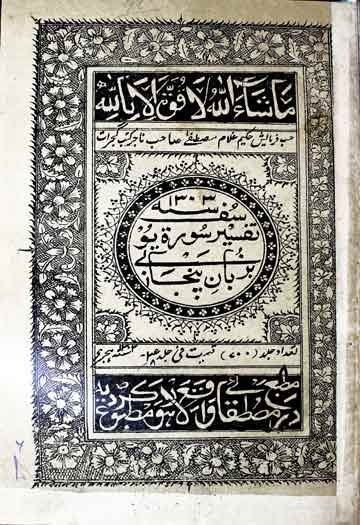 ماشاء الله لا قوة الا بالله
حسب فرمایش حکیم غلام مصطفے صاحب تاجر کتب گجرات
۱۳۰۳ سنه
تفسیر سورة یوسف
بزبان پنجابی
تعداد جلد (۷۰۰) قیمت فی جلد
مطبع
در مصطفائی واقع لاهور مطبوع گردید